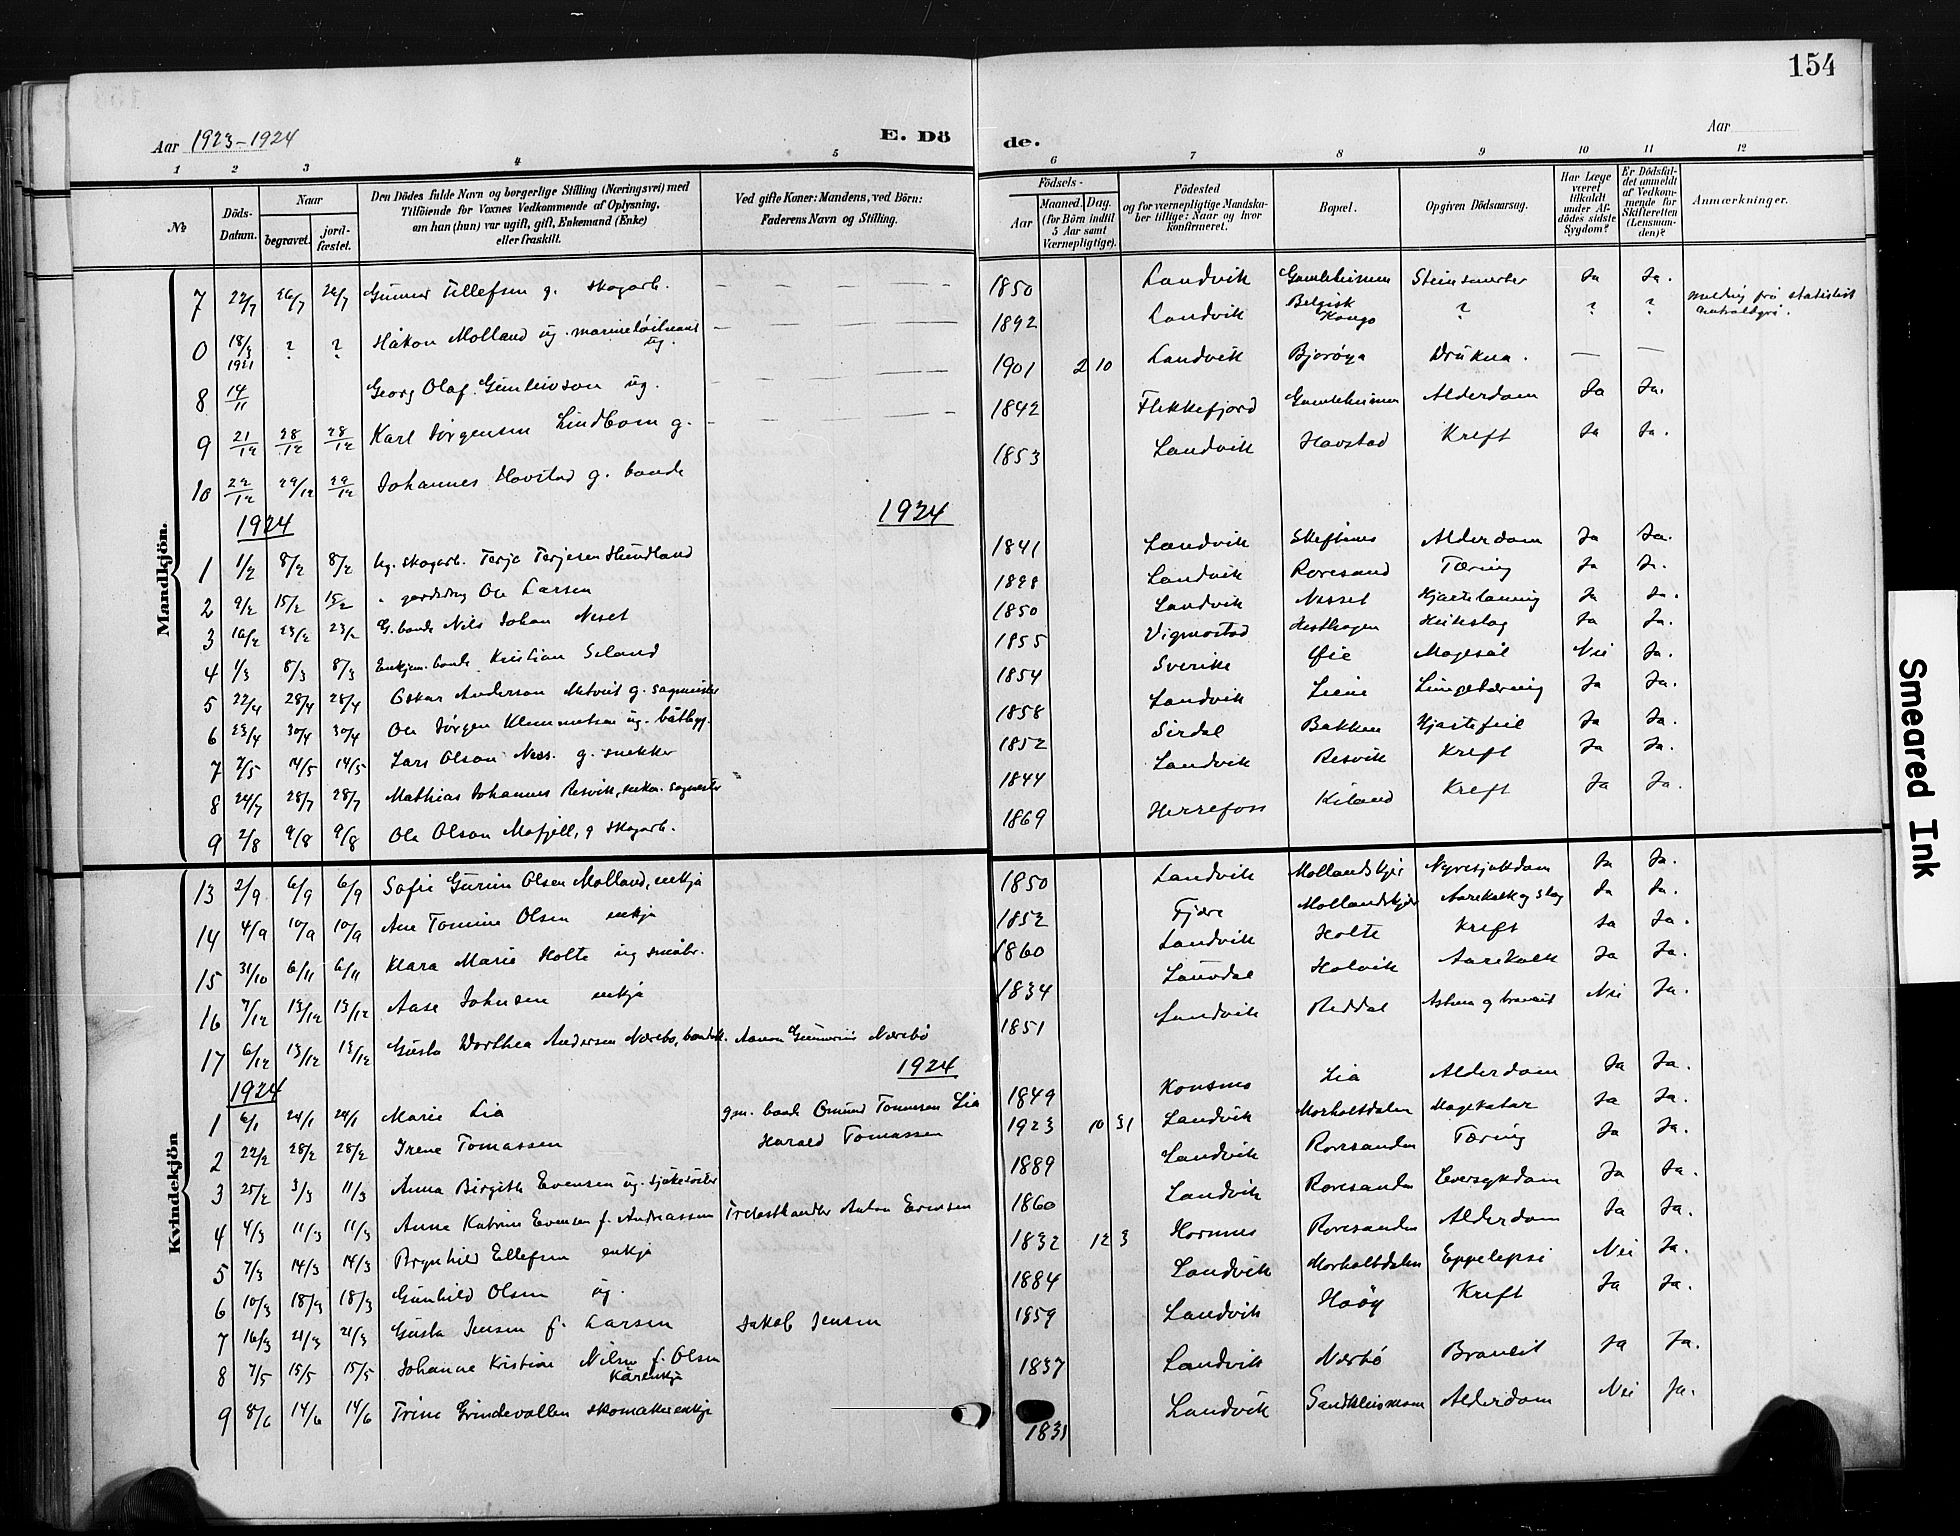 154
Aar 1923-1924
E. Dö
de.
Aar
1 2 3 4 5 6 7 8 9 10 11 12
№
Döds-Datum.
Naar
begravet.
jord-fæstet.
Den Dödes fulde Navn og borgerlige Stilling (Næringsvei) med
Tilföiende for Voxnes Vedkommende af Oplysning,
om han (hun) var ugift, gift, Enkemand (Enke)
eller fraskilt.
Ved gifte Koner: Mandens, ved Börn:
Faderens Navn og Stilling.
Födsels-
Aar
Maaned. Dag.
(for Börn indtil
5 Aar samt
Værnepligtige).
Födested
og for værnepligtige Mandska-
ber tillige: Naar og hvor
konfirmeret.
Bopæl.
Opgiven Dödsaarsag.
Har Læge
været
tilkaldt
under Af-
dödes sidste
Sygdom?
Er Dödsfal-
det anmeldt
af Vedkom-
mende for
Skifteretten
(Lensman-
den)?
Anmærkninger.
Mandkjön.
7 22/7 26/7 26/7 Gunnar Tellefsen g. skogarb. 1850 Landvik Steinsmerter Ja Ja.
0 18/3 1921 ? ? Håkon Molland ug. marineløitnant 1892 Landvik Belgisk Kongo ? ? ? melding frå statistisk
8 14/11 Georg Olaf Gunleivson ug. 1901 2 10 Landvik Bjorøya Drukna. — —
9 21/12 28/12 28/12 Karl Jørgensen Lindbom g. 1842 Flekkefjord Alderdom Ja Ja.
10 22/12 29/12 29/12 Johannes Hovstad g. bonde 1853 Landvik Hovstad Kreft Ja Ja.
1924 1924
1 1/2 8/2 8/2 ug. skogarb. Terje Terjesen Hundland 1841 Landvik Skeftenes Alderdom Ja Ja.
2 9/2 15/2 15/2 Ole Larsen 1898 Landvik Roresand Tæring Ja Ja.
3 16/2 23/2 23/2 G. bonde Nils Johan Neset 1850 Landvik Nesset Hjartelaming Ja Ja.
4 1/3 8/3 8/3 Enkjem. bonde Kristian Seland 1855 Vigmostad Hesthagen Ja Ja.
5 22/4 28/4 28/4 Oskar Anderson g. sagmeister 1854 Sverike Øie Magesål Nei Ja.
6 23/4 30/4 30/4 Ole Jørgen Klemmetsen ug. båtbygg. 1858 Landvik Liene Lungetæring Ja Ja.
7 7/5 14/5 14/5 Lars Olson Nes. g. snekker 1852 Sirdal Bakken Hjartefeil Ja Ja.
8 24/7 28/7 28/7 Mathias Johannes Resvik, enkem. sagmester 1844 Landvik Resvik Kreft Ja Ja.
9 2/8 9/8 9/8 Ole Olson Mofjell, g skogarb. 1869 Herrefoss Kiland Kreft Ja Ja.
Kvindekjön
13 2/9 6/9 6/9 Sofie Gurine Olsen Molland, enkja 1850 Landvik Mollandskjer Nyresjukdom Ja Ja.
14 4/9 10/9 10/9 Ane Tomine Olsen enkja 1852 Fjære Mollandskjer Aarekalk og slag Ja Ja.
15 31/10 6/11 6/11 Klara Marie Holte ug småbr. 1860 Landvik Holte Kreft Ja Ja.
16 7/12 13/12 13/12 Aase Johnsen enkja 1834 Lauvdal Holvik Aarekalk Ja Ja.
17 6/12 13/12 13/12 Gusta Dorthea Andersen Nærebø, Aanon Gunnerius Nærebø 1851 Landvik Reddal Astma og Nei Ja.
1924 1924
1 6/1 24/1 24/1 Marie Lia gm. bonde Omund Tomesen Lia 1849 Konsmo Lia Alderdom Ja Ja.
2 22/2 28/2 28/2 Irene Tomassen Harald Tomassen 1923 10 31 Landvik Morholtdalen Magekatar Ja Ja.
3 25/2 3/3 11/3 Anna Birgitte Evensen ug. sjukesøster 1889 Landvik Roresanden Tæring Ja Ja.
4 4/3 11/3 11/3 Anne Katrine Evensen f. Andreassen Trelasthandler Anton Evensen 1860 Landvik Roresanden Leversykdom Ja Ja.
5 7/3 14/3 14/3 Brynhild Ellefsen enkja 1832 12 3 Hornnes Roresanden Alderdom Ja Ja.
6 10/3 18/3 18/3 Gunhild Olsen ug. 1884 Landvik Morholtdalen Eppelepsi Nei Ja.
7 16/3 21/3 21/3 Gusta Jensen f. Larsen Jakob Jensen 1859 Landvik Haøy Kreft Ja Ja.
8 7/5 15/5 15/5 Johanne Kristine Nilsen f. Olsen 1837 Landvik Nærbø Ja Ja.
9 8/6 14/6 14/6 Trine Grindevollen skomakerenkje 1831 Landvik Alderdom Nei Ja.
Smeared Ink